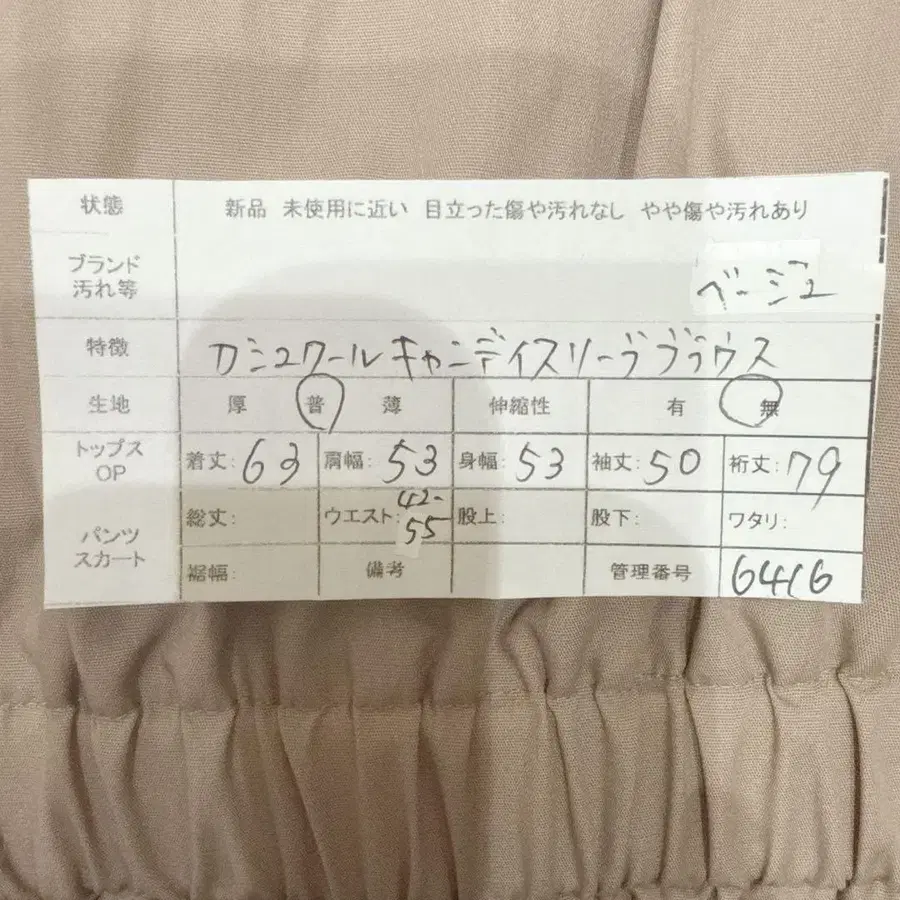 状態 新品 未使用に近い 目立った傷や汚れなし やや傷や汚れあり
ブランド
汚れ等 ベージュ
特徴 カシュクールキャンディスリーブブラウス
生地 厚 普 薄 伸縮性 有 無
トップス
OP 着丈:63 肩幅:53 身幅:53 袖丈:50 裄丈:79
パンツ
スカート 総丈: ウエスト:42-55 股上: 股下: ワタリ:
裾幅: 備考 管理番号 6416